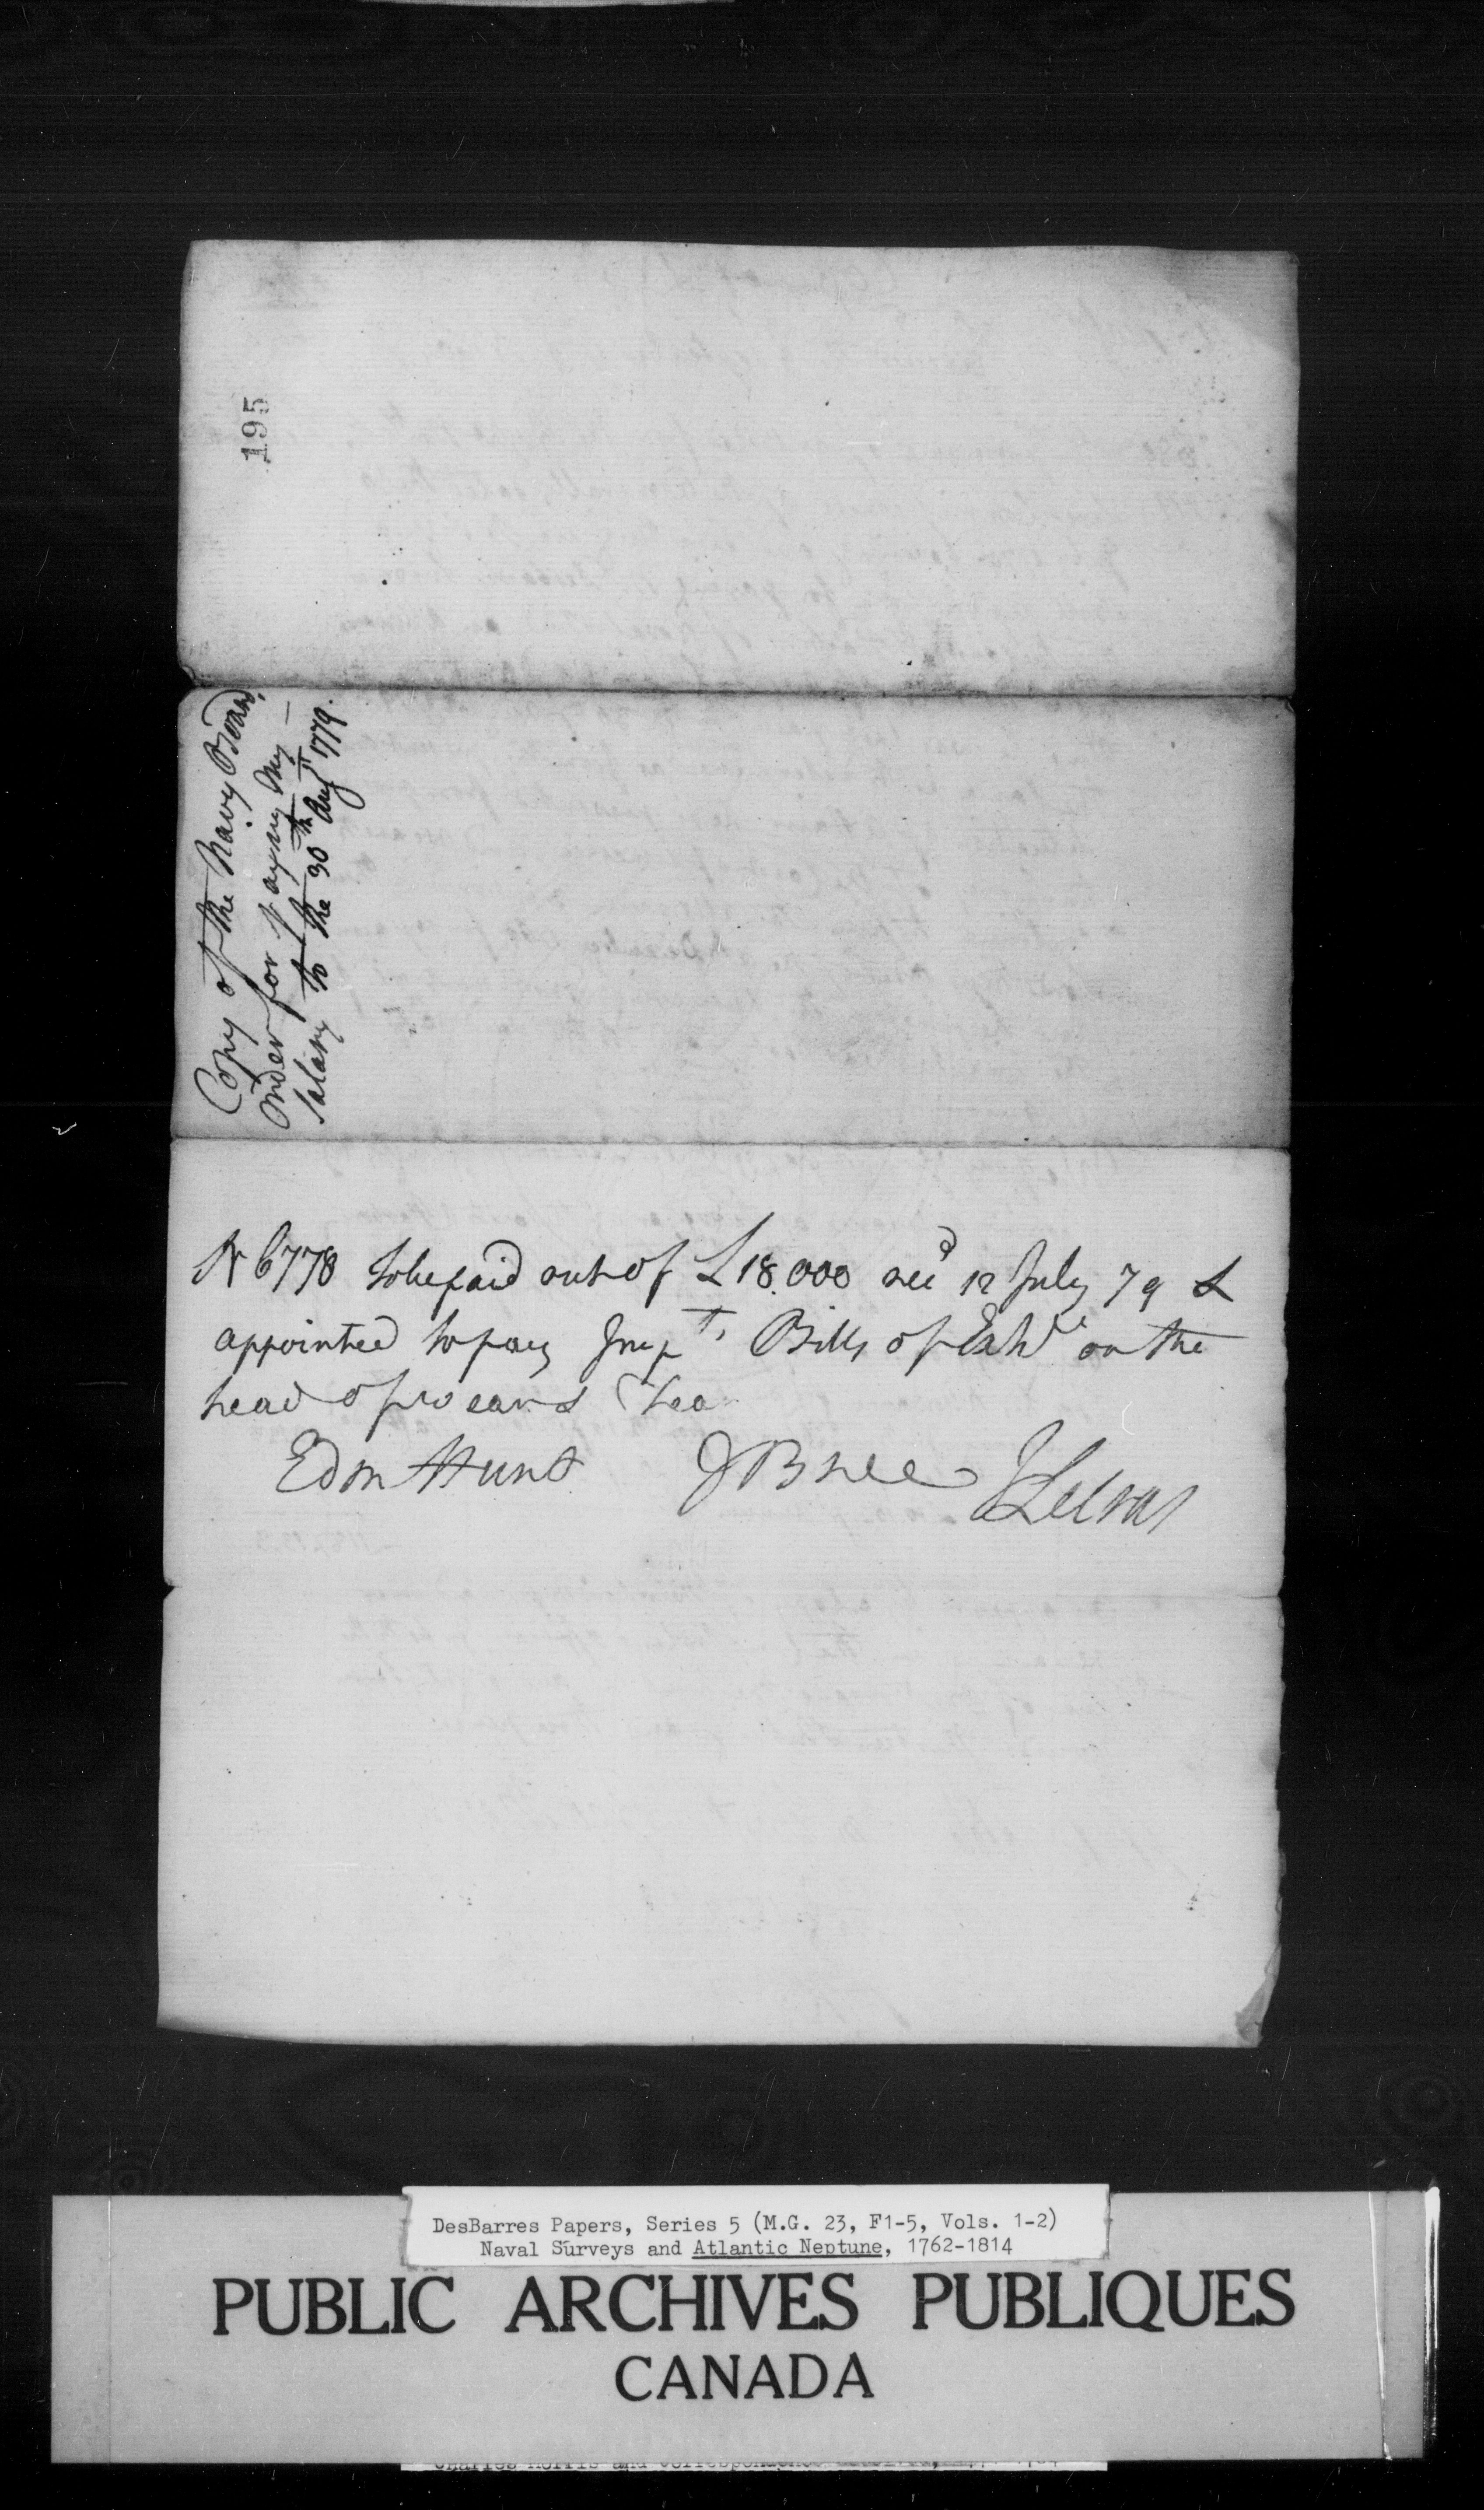 195
Copy of the Navy Board,
Order for paying my —
Salary to the 30th Augt 1779.
N 6778 to be paid out of £18.000 recd 12 July 79 &
appointed to pay Impts, Bills of Exhe on the
head of wear &
Edm Hunt
DesBarres Papers, Series 5 (M.G. 23, F1-5, Vols. 1-2)
Naval Surveys and Atlantic Neptune, 1762-1814
PUBLIC ARCHIVES PUBLIQUES
CANADA